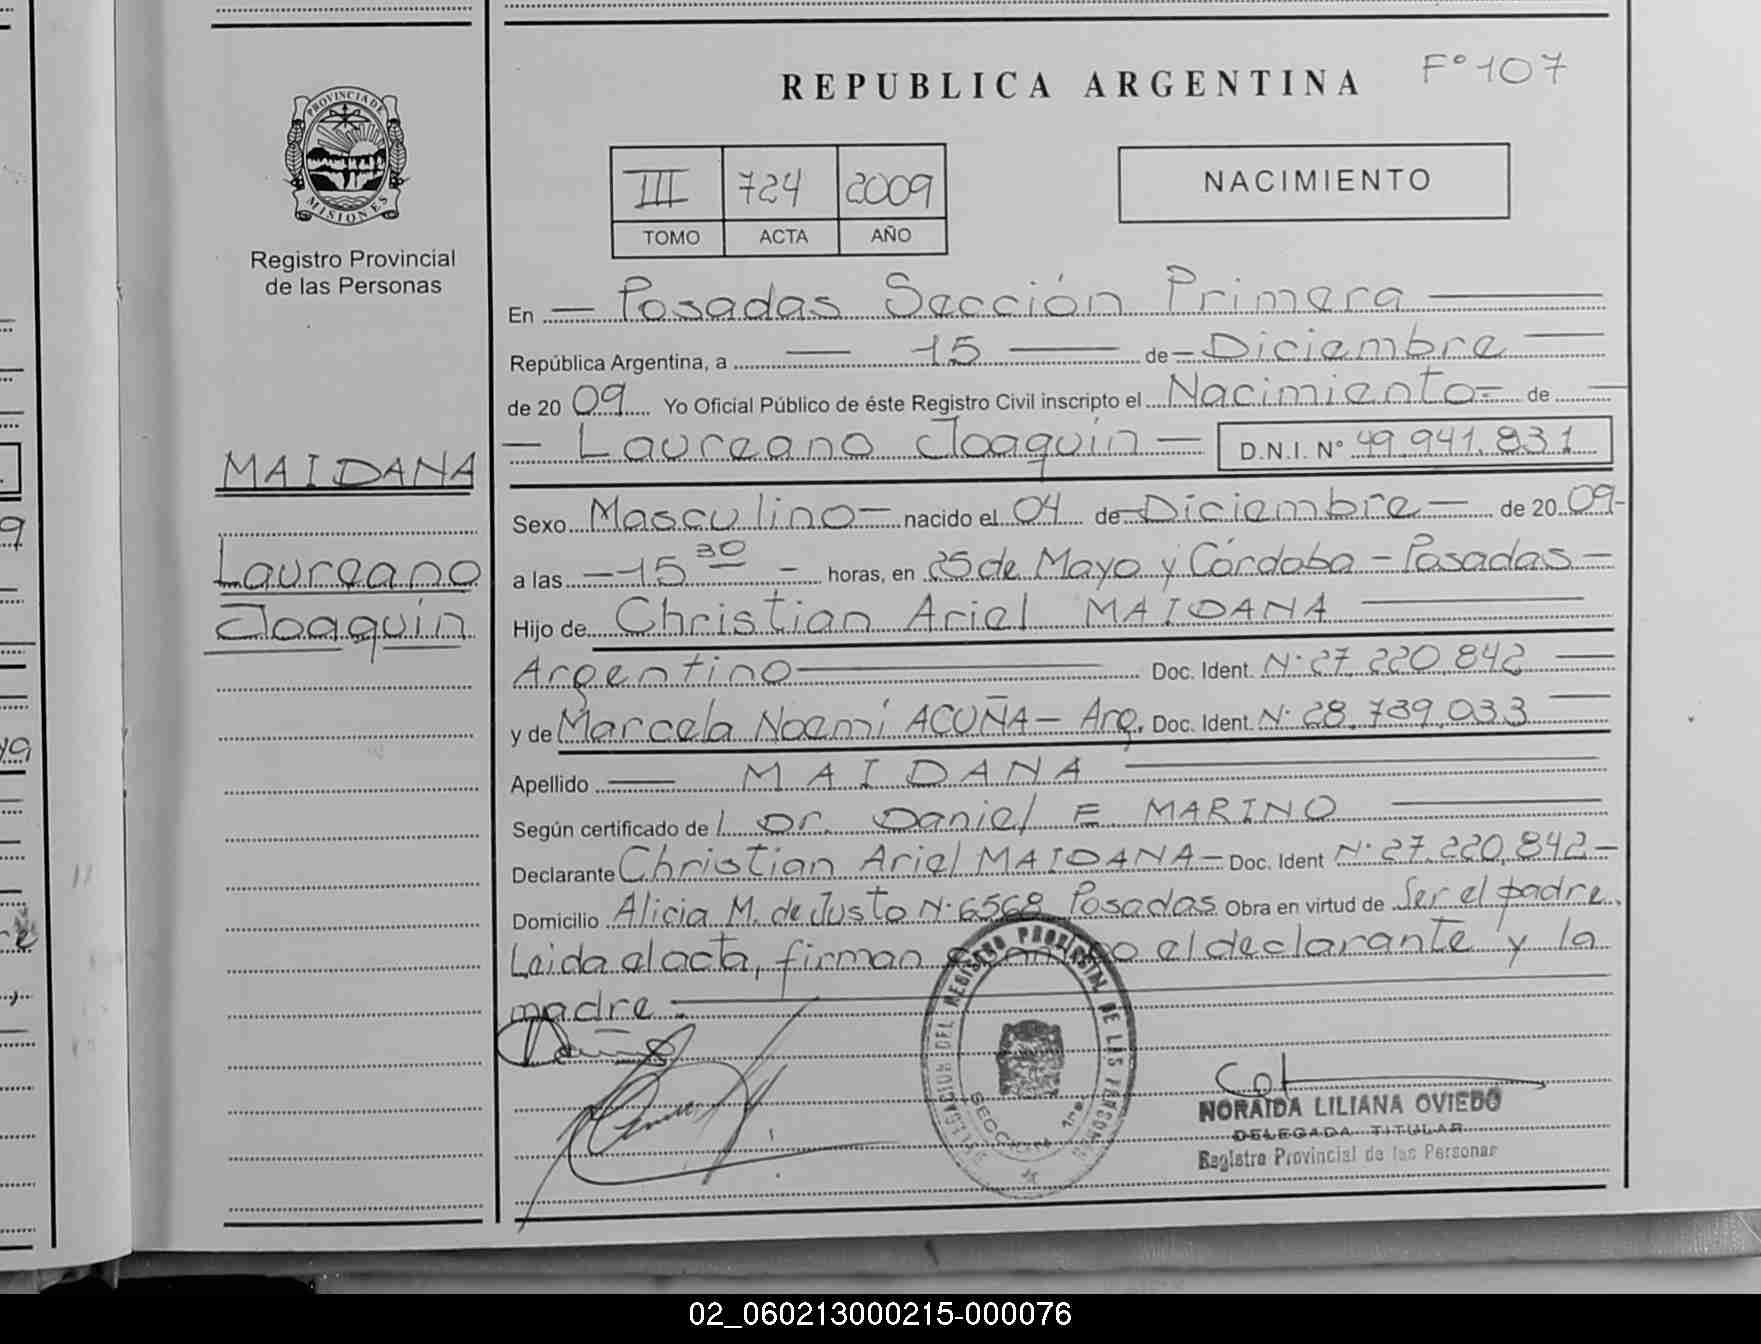 REPUBLICA ARGENTINA
F° 107
PROVINCIA DE
MISIONES
Registro Provincial
de las Personas
III 724 2009
TOMO ACTA AÑO
NACIMIENTO
En — Posadas Sección Primera —
República Argentina, a — 15 — de — Diciembre —
de 20 09 Yo Oficial Público de éste Registro Civil inscripto el Nacimiento = de —
— Laureano Joaquín — D.N.I. N° 49.941.831
MAIDANA
Laureano
Joaquín
Sexo Masculino — nacido el 04 de — Diciembre — de 20 09 -
a las — 15 30 — horas, en 25 de Mayo y Córdoba - Posadas -
Hijo de Christian Ariel MAIDANA —
Argentino — Doc. Ident. N° 27.220.842 —
y de Marcela Noemí ACUÑA — Arg. Doc. Ident. N° 28.739.033 —
Apellido — MAIDANA —
Según certificado de l Dr. Daniel E MARINO —
Declarante Christian Ariel MAIDANA — Doc. Ident N° 27.220.842 —
Domicilio Alicia M. de Justo N° 6568 Posadas Obra en virtud de Ser el padre.
Leida el acta, firman conmigo el declarante y la
madre. —
DELEGACION DEL REGISTRO PROVINCIAL DE LAS PERSONAS
SECCION 1ra
NORAIDA LILIANA OVIEDO
DELEGADA TITULAR
Registro Provincial de las Personas
02_060213000215-000076